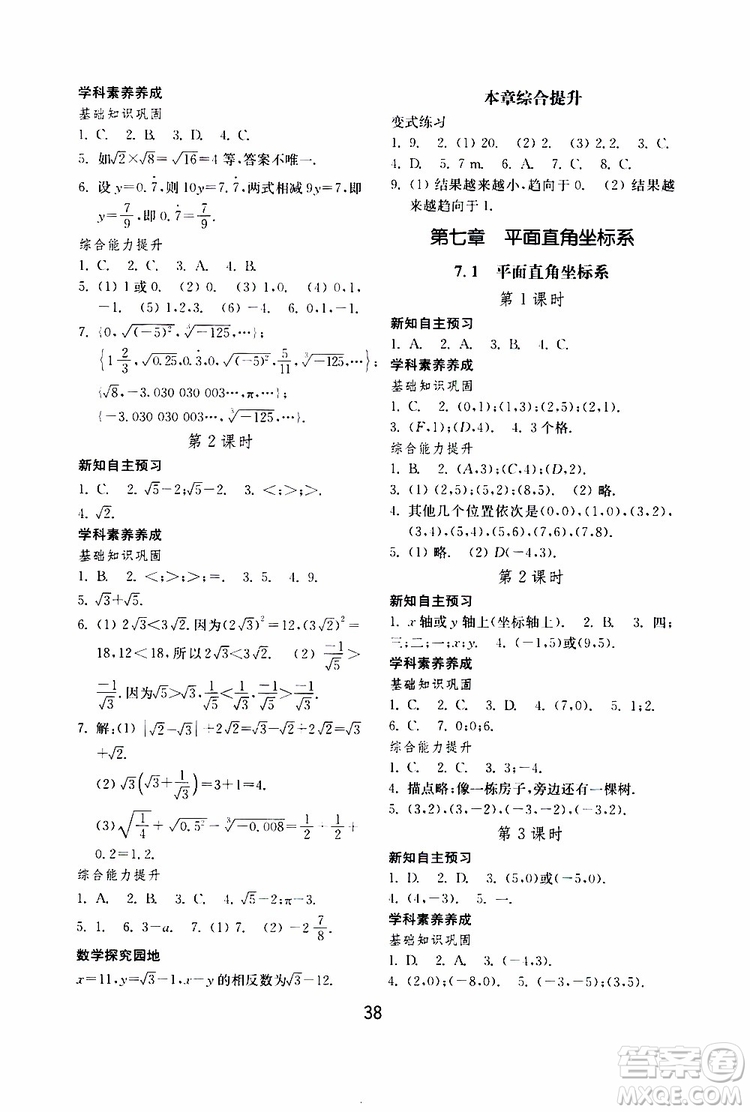 学科素养养成
基础知识巩固
1. C. 2. B. 3. D. 4. C.
5. 如√2×√8=√16=4 等,答案不唯一.
6. 设 y=0.7̇,则 10y=7.7̇,两式相减 9y=7,即
y=7/9,即 0.7̇=7/9.
综合能力提升
1. C. 2. B. 3. A. 4. C.
5. (1) 1 或 0. (2) 0. (3) 0 或 1. (4) 0,1,
-1. (5) 1,2,3. (6) -4. 6. 0,±1.
7. {0,√(-5)²,∛-125,…};
{1 2/3,√0.25,0.3,√(-5)²,5/11,∛-125,…};
{√8,-3.030 030 003…,π,…};
{-3.030 030 003…,∛-125,…}.
第 2 课时
新知自主预习
1. C. 2. √5-2;√5-2. 3. <;>;>.
4. √2.
学科素养养成
基础知识巩固
1. B. 2. <;>;>;=. 3. 5. 4. 9.
5. √3+√5.
6. (1) 2√3<3√2. 因为(2√3)²=12,(3√2)²=
18,12<18,所以 2√3<3√2. (2) -1/√5>
-1/√3. 因为√5>√3,1/√5<1/√3,-1/√5>-1/√3.
7. 解:(1) |√2-√3|+2√2=√3-√2+2√2=√3
+√2.
(2) √3(√3+1/√3)=3+1=4.
(3) √(1/4)+√0.5²-∛-0.008=1/2+1/2+
0.2=1.2.
综合能力提升
1. A. 2. D. 3. C. 4. C.
5. 1. 6. 3-a. 7. (1) 7. (2) -2 7/8.
数学探究园地
x=11,y=√3-1,x-y 的相反数为√3-12.
本章综合提升
变式练习
1. 9. 2. (1) 20. (2) 2. (3) 2.2. 3. C.
4. D. 5. 7 m. 6. C. 7. B. 8. C.
9. (1) 结果越来越小,趋向于 0. (2) 结果越来
越趋向于 1.
第七章 平面直角坐标系
7.1 平面直角坐标系
第 1 课时
新知自主预习
1. A. 2. A. 3. B. 4. C.
学科素养养成
基础知识巩固
1. C. 2. (0,1);(1,3);(2,5);(5,1).
3. (F,1);(D,4). 4. 3 个格.
综合能力提升
1. B. 2. (A,3);(C,5);(D,2).
3. (1) (2,5);(8,5). (2) 略.
4. 其他几个位置依次是(0,0),(1,0),(3,2),
(3,4),(5,4),(5,6),(7,6),(7,8).
5. (1) 略. (2) D(-4,3).
第 2 课时
新知自主预习
1. x 轴或 y 轴上(坐标轴上). 2. B. 3. 四;
三;二;一;x;y. 4. (-1,5)或(9,5).
学科素养养成
基础知识巩固
1. B. 2. C. 3. D. 4. (7,0). 5. 1;2.
6. C. 7. 0;0;6.
综合能力提升
1. B. 2. C. 3. 3;-4.
4. 描点略;像一栋房子,旁边还有一棵树.
5. (3,2),(3,-2),(-3,2),(-3,-2).
第 3 课时
新知自主预习
1. D. 2. D. 3. (5,0)或(-5,0).
4. (4,-3). 5. 一.
学科素养养成
基础知识巩固
1. D. 2. A. 3. C.
4. (2,0);(-8,0). 5. (-5,-3). 6. D.
38
答案圈
MXQE.COM